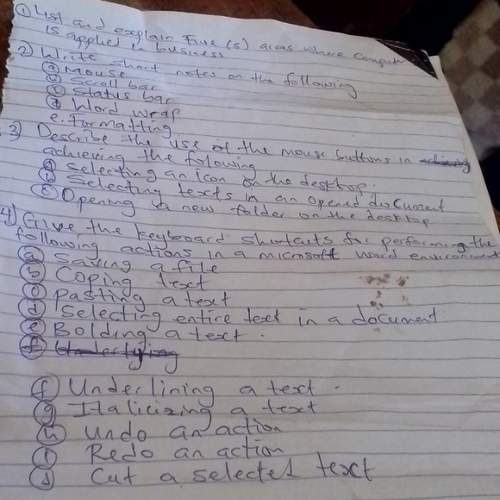 ① List and explain Five (5) areas where Comput
is applied in business
2) Write short notes on the following
ⓐ Mouse
ⓑ Scroll bar
ⓒ Status bar
ⓓ Word wrap
e. Formatting
3) Describe the use of the mouse buttons in
achieving the following
ⓐ Selecting an icon on the desktop.
ⓑ Selecting texts in an opened document
ⓒ Opening a new folder on the desktop
4) Give the keyboard shortcuts for performing the
following actions in a microsoft word environment
ⓐ Saving a file
ⓑ Coping text
ⓒ Pasting a text
ⓓ Selecting entire text in a document
ⓔ Bolding a text.
ⓕ Underlining a text.
ⓖ Italicizing a text
ⓗ Undo an action
ⓘ Redo an action
ⓙ Cut a selected text